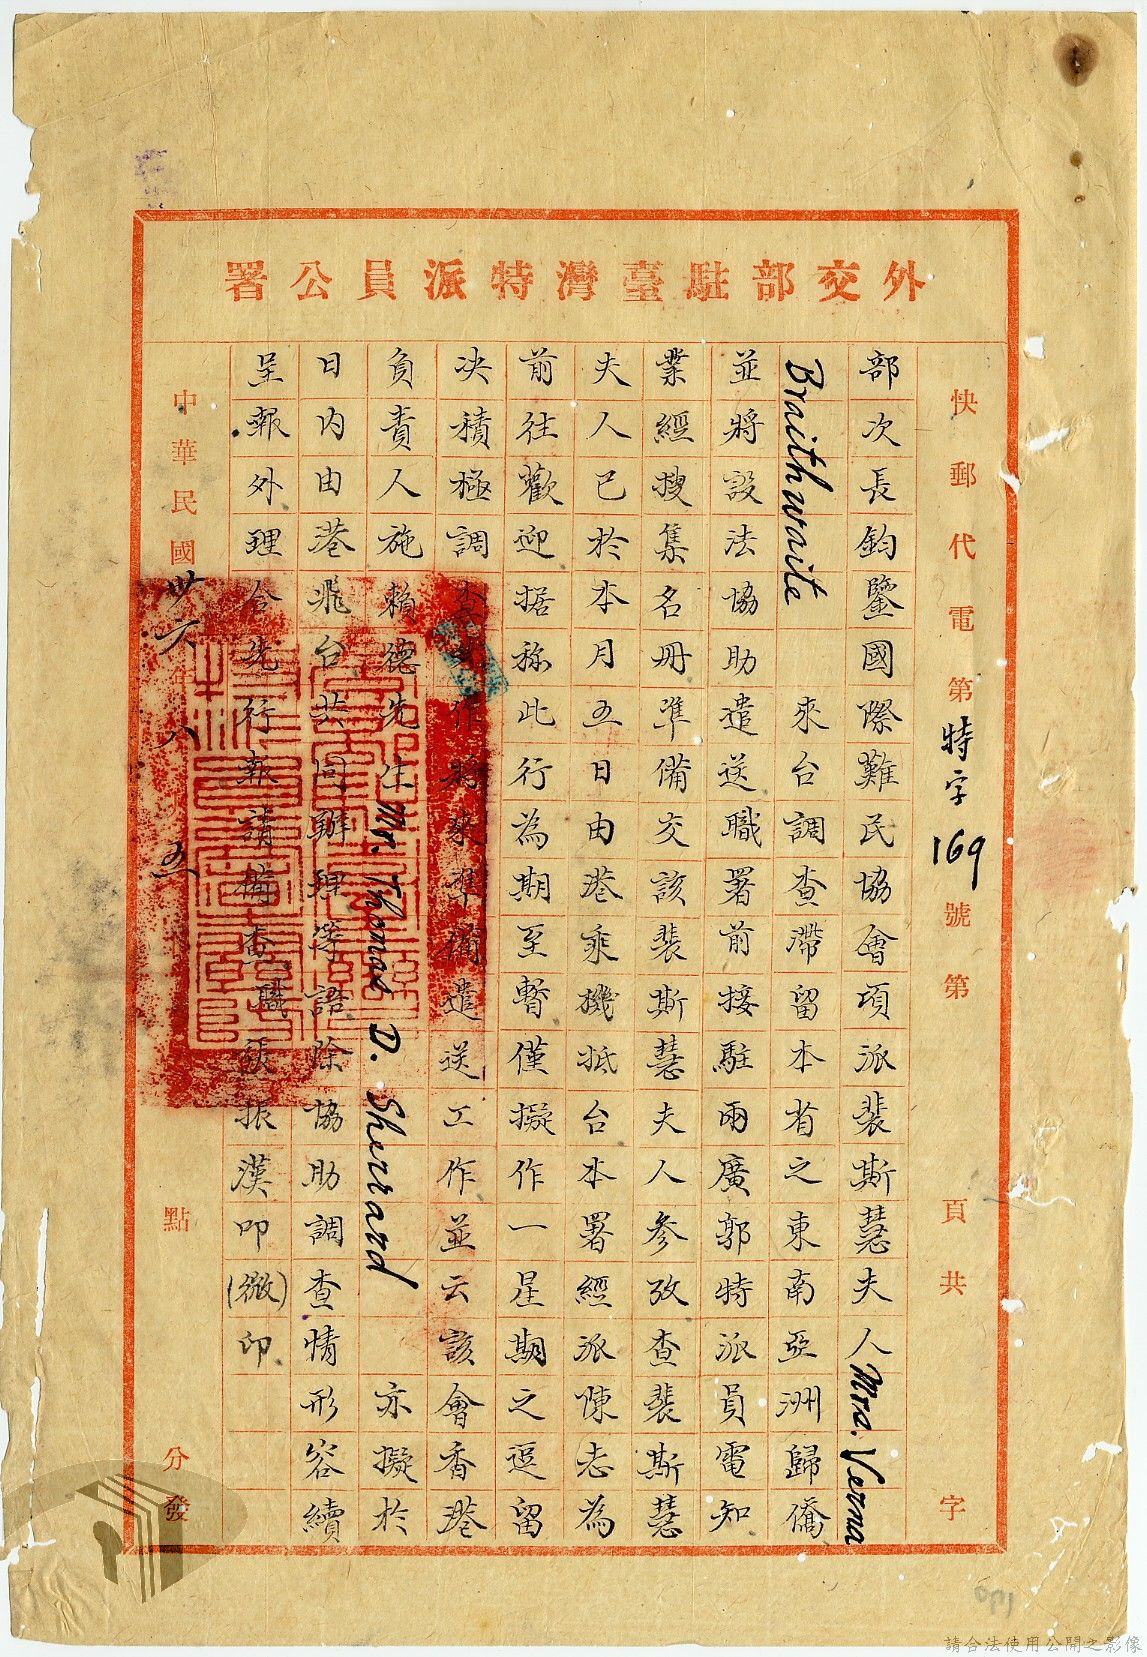 外交部駐臺灣特派員公署
快郵代電第特字169號第 頁共 字
部次長鈞鑒國際難民協會項派裴斯慧夫人Mrs. Verna
Braithwaite 來台調查滯留本省之東南亞洲歸僑
並將設法協助遣送職署前接駐兩廣郭特派員電知
業經搜集名冊準備交該裴斯慧夫人參攷查裴斯慧
夫人已於本月五日由港乘機抵台本署經派陳志為
前往歡迎据称此行為期至暫僅擬作一星期之逗留
決積極調查工作將來準備遣送工作並云該會香港
負責人施賴德先生Mr. Thomas D. Sherrard 亦擬於
日內由港飛台共同辦理等語除協助調查情形容續
呈報外理合先行報請備查職張振漢叩(微)印
中華民國卅六年八月五 點 分發
請合法使用公開之影像